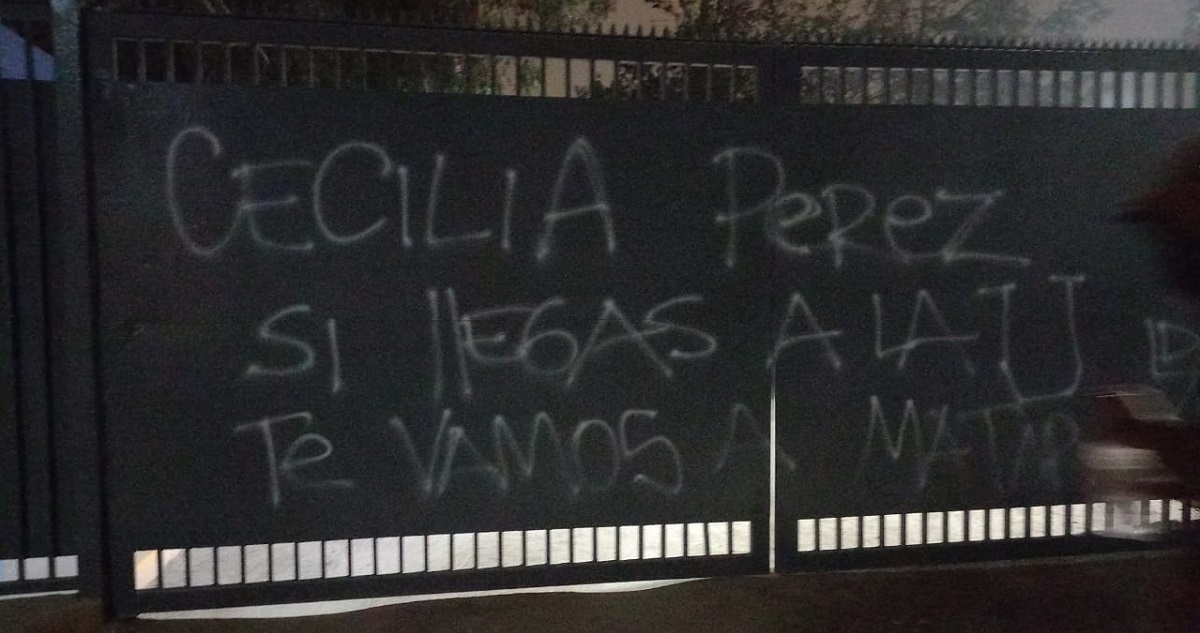 CECILIA PeReZ
SI llEGAS A LA U D
Te VAMOS A MATAR